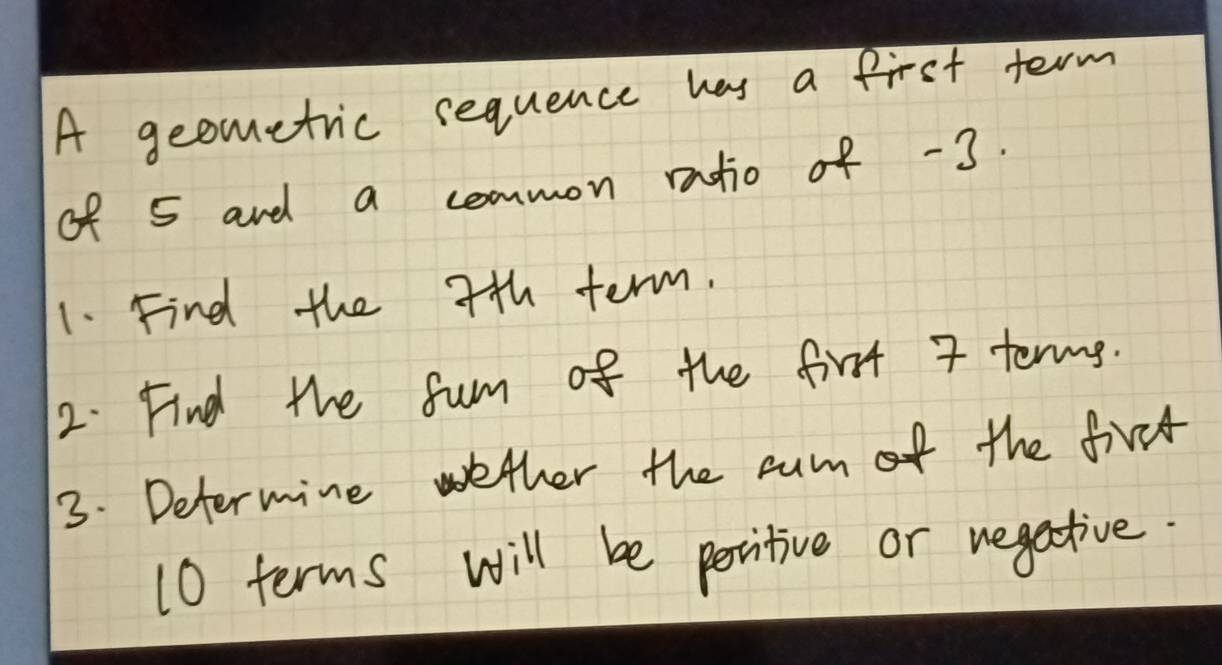 A geometric sequence has a first term
of 5 and a common ratio of -3.
1. Find the 7th term.
2. Find the sum of the first 7 terms.
3. Determine wether the sum of the first
10 terms will be positive or negative.